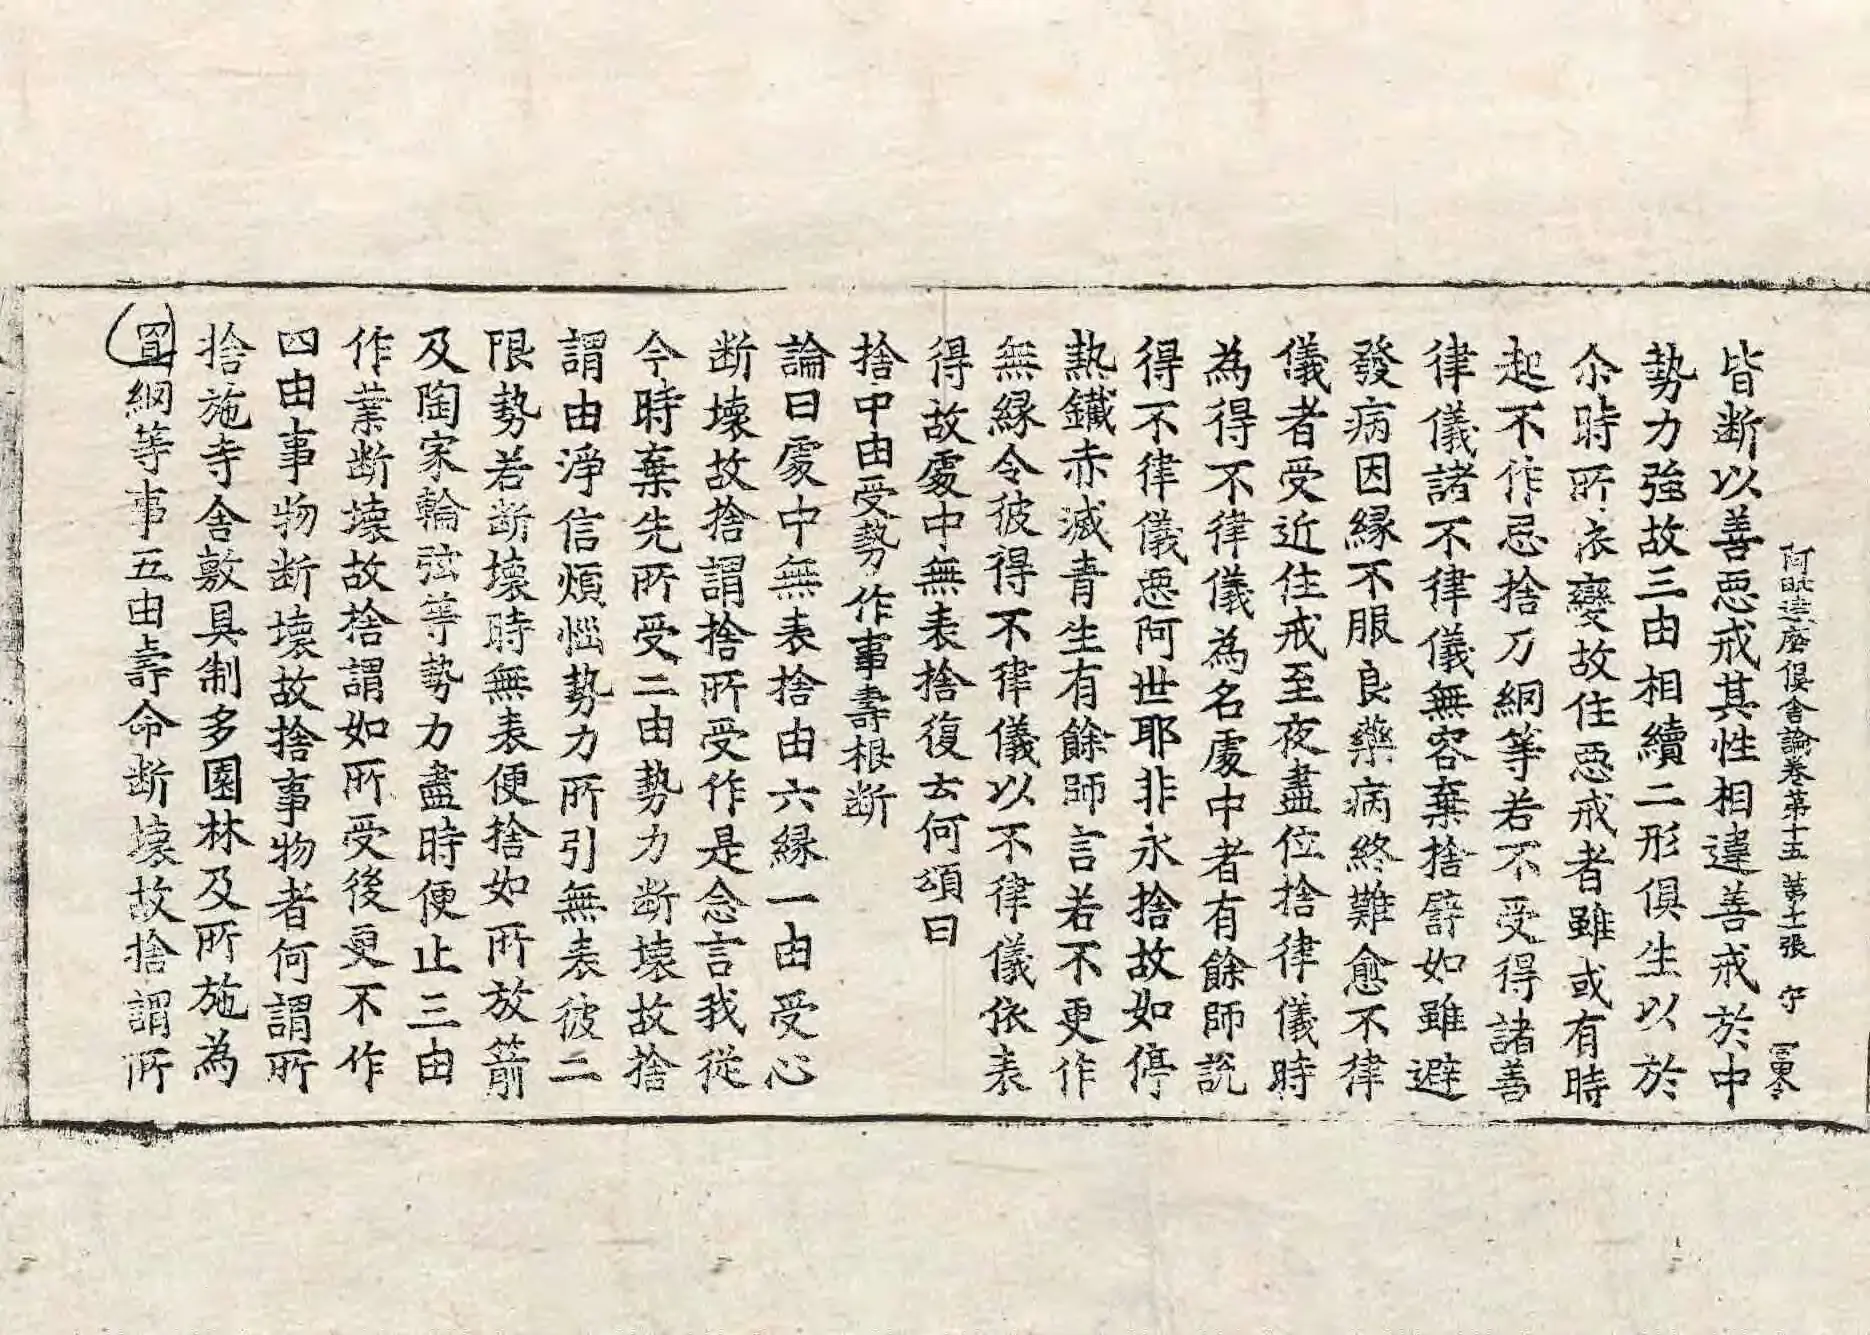 阿毗達磨俱舍論卷第十五 第十一張 守
皆斷以善惡戒其性相違善戒於中
勢力強故三由相續二形俱生以於
尒時所依變故住惡戒者雖或有時
起不作忌捨刀網等若不受得諸善
律儀諸不律儀無容棄捨譬如雖避
發病因緣不服良藥病終難愈不律
儀者受近住戒至夜盡位捨律儀時
為得不律儀為名處中者有餘師說
得不律儀惡阿世耶非永捨故如停
熱鐵赤滅青生有餘師言若不更作
無緣令彼得不律儀以不律儀依表
得故處中無表捨復云何頌曰
捨中由受勢 作事壽根斷
論曰處中無表捨由六緣一由受心
斷壞故捨謂捨所受作是念言我從
今時棄先所受二由勢力斷壞故捨
謂由淨信煩惱勢力所引無表彼二
限勢若斷壞時無表便捨如所放箭
及陶家輪弦等勢力盡時便止三由
作業斷壞故捨謂如所受後更不作
四由事物斷壞故捨事物者何謂所
捨施寺舍敷具制多園林及所施為
罝網等事五由壽命斷壞故捨謂所